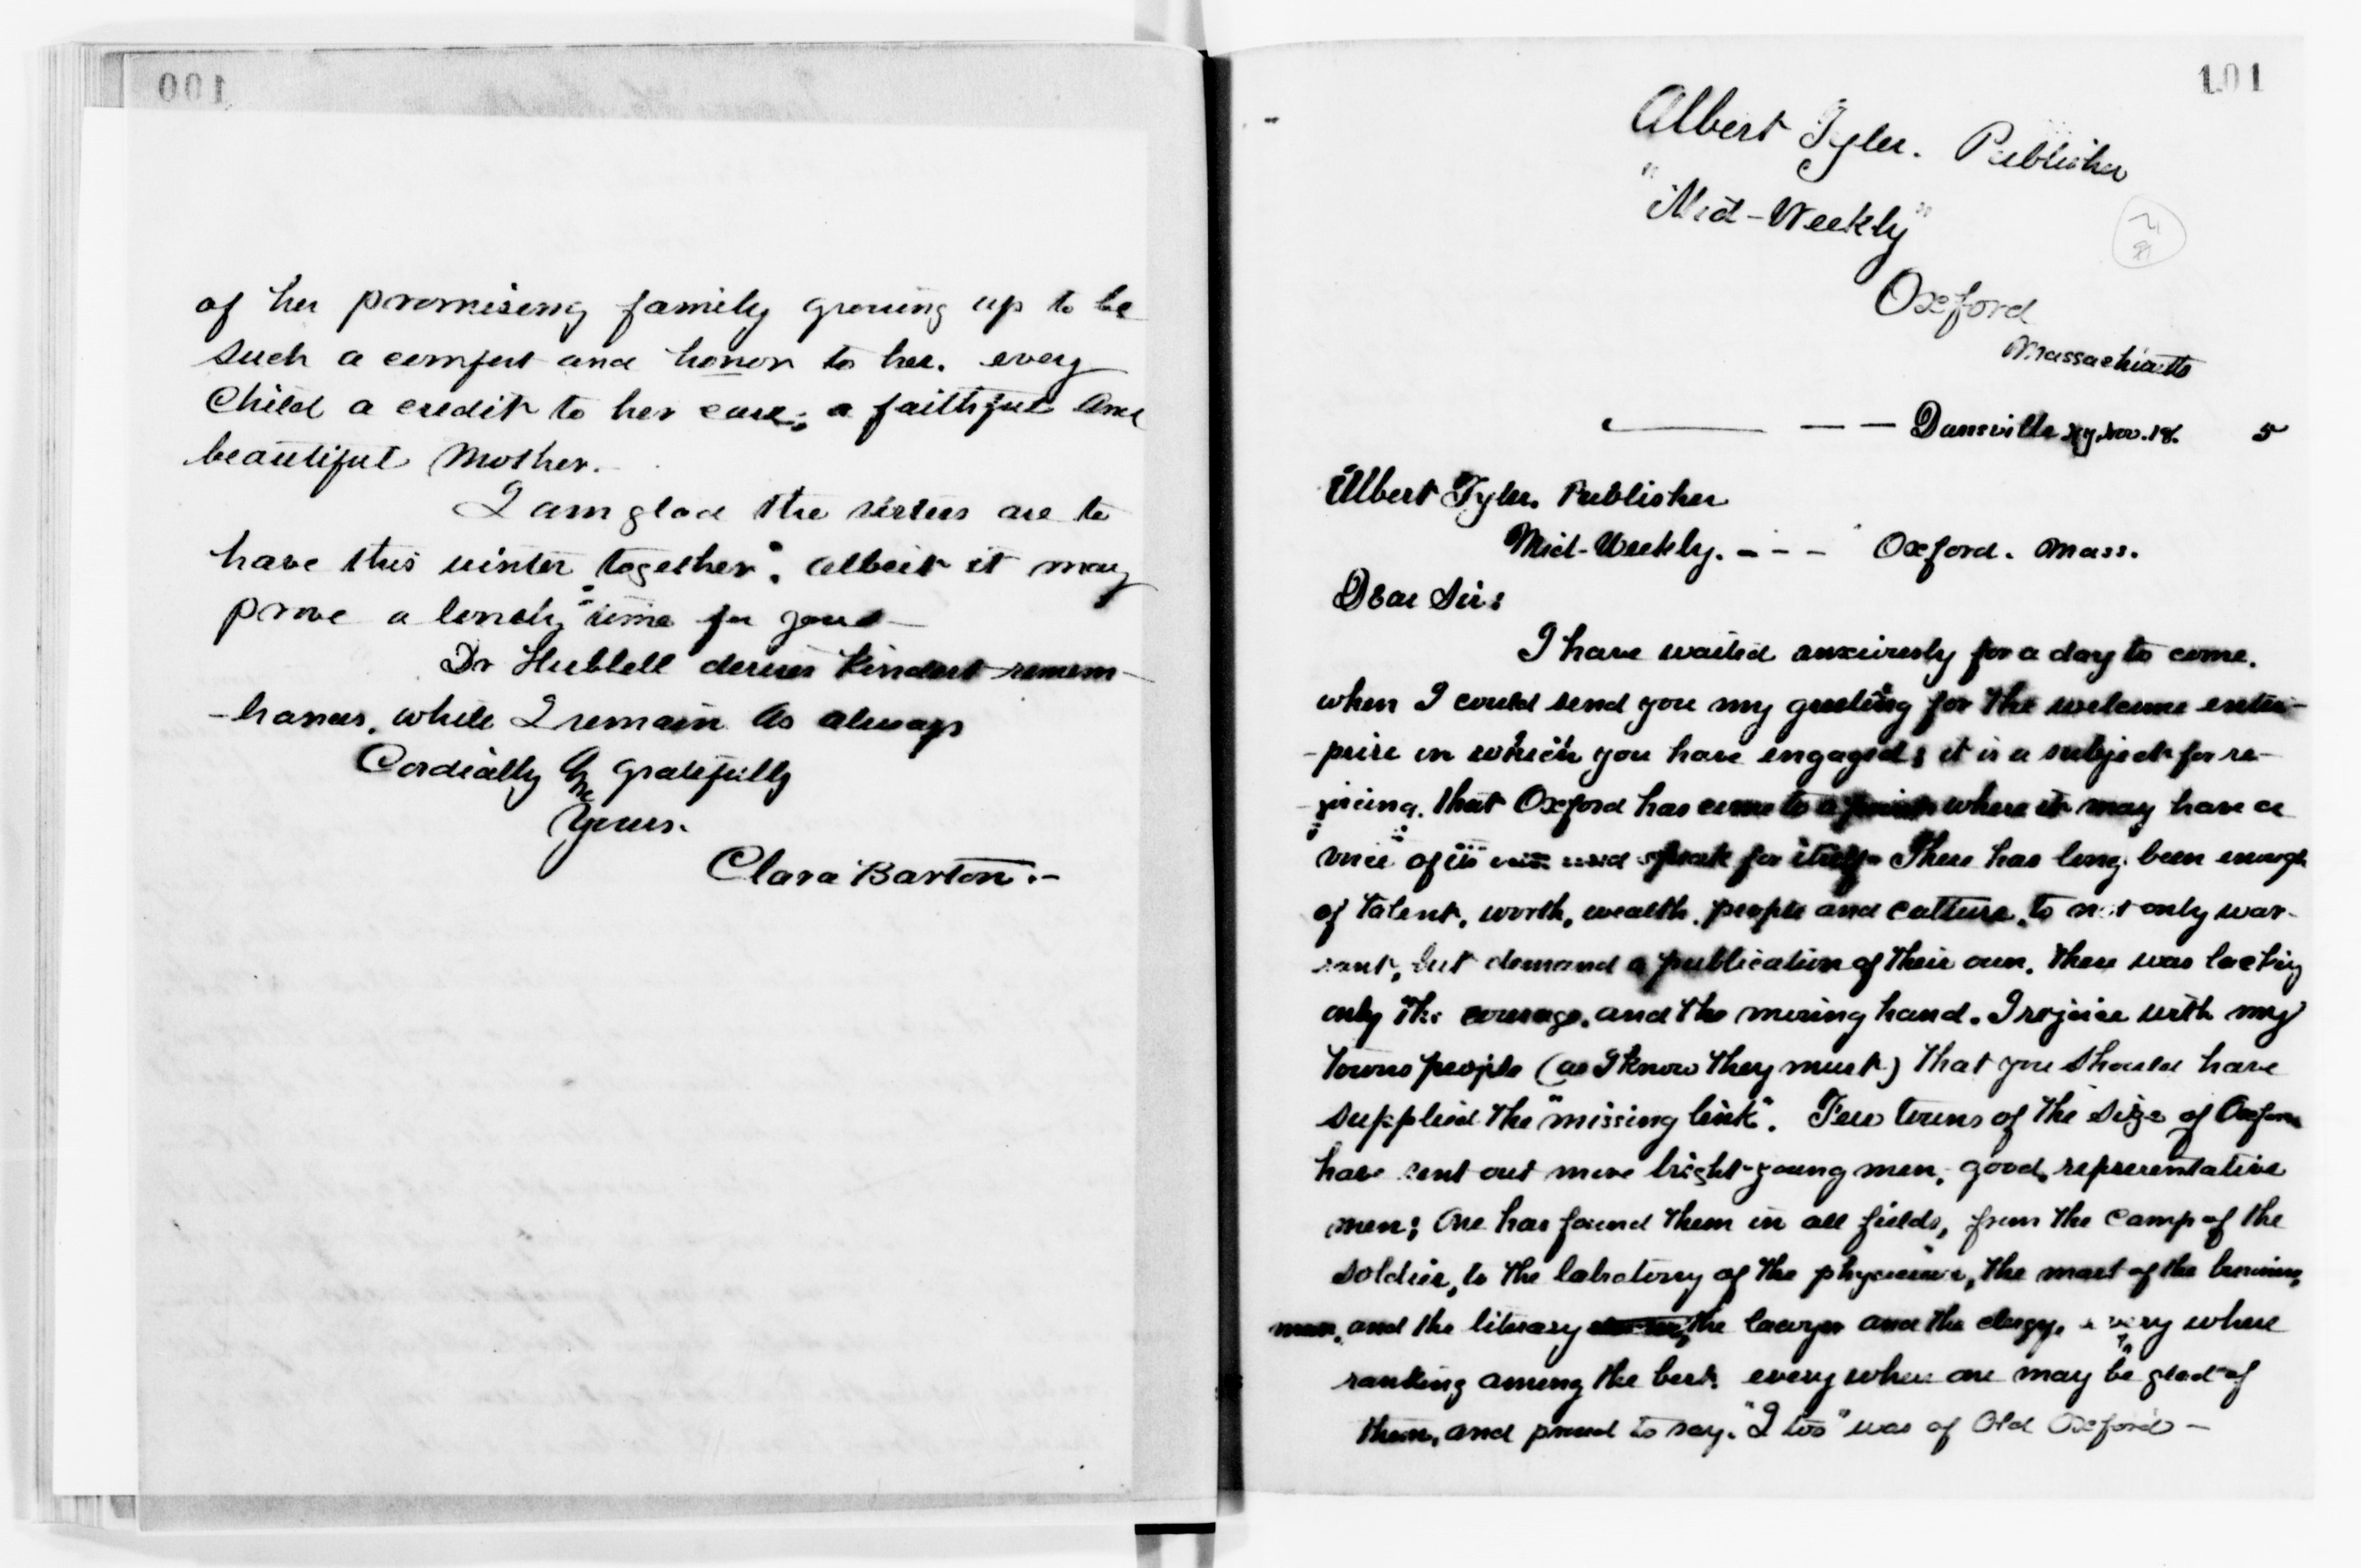 100
of her promising family growing up to be
such a comfort and honor to her. every
Child a credit to her care; a faithful and
beautiful Mother.
I am glad the sisters are to
have this winter together. albeit it may
prove a lonely time for you
Dr Hubbell desires kindest remem-
-brances, while I remain as always
Cordially & gratefully
Yours.
Clara Barton.-
101
Albert Tyler. Publisher
"Mid-Weekly"
Oxford
Massachusetts
Dansville Ny. Nov. 18. 5
Albert Tyler. Publisher
Mid-Weekly. - - - Oxford. Mass.
Dear Sir:
I have waited anxiously for a day to come.
when I could send you my greeting for the welcome enter-
-prise in which you have engaged; it is a subject for re-
-joicing. that Oxford has come to a point where it may have a
voice of its own and speak for itself. There has long been enough
of talent, worth, wealth, people and culture, to not only war-
rant, but demand a publication of their own. There was lacking
only the courage, and the moving hand. I rejoice with my
towns people (as I know they must) that you should have
supplied the "missing link". Few towns of the size of Oxford
have sent out more bright young men, good, representative
men; One has found them in all fields, from the camp of the
soldier, to the labratory of the physician, the mart of the business
man, and the literary the lawyer and the clergy, every where
ranking among the best. every where one may be glad of
them, and proud to say. "I too" was of Old Oxford -